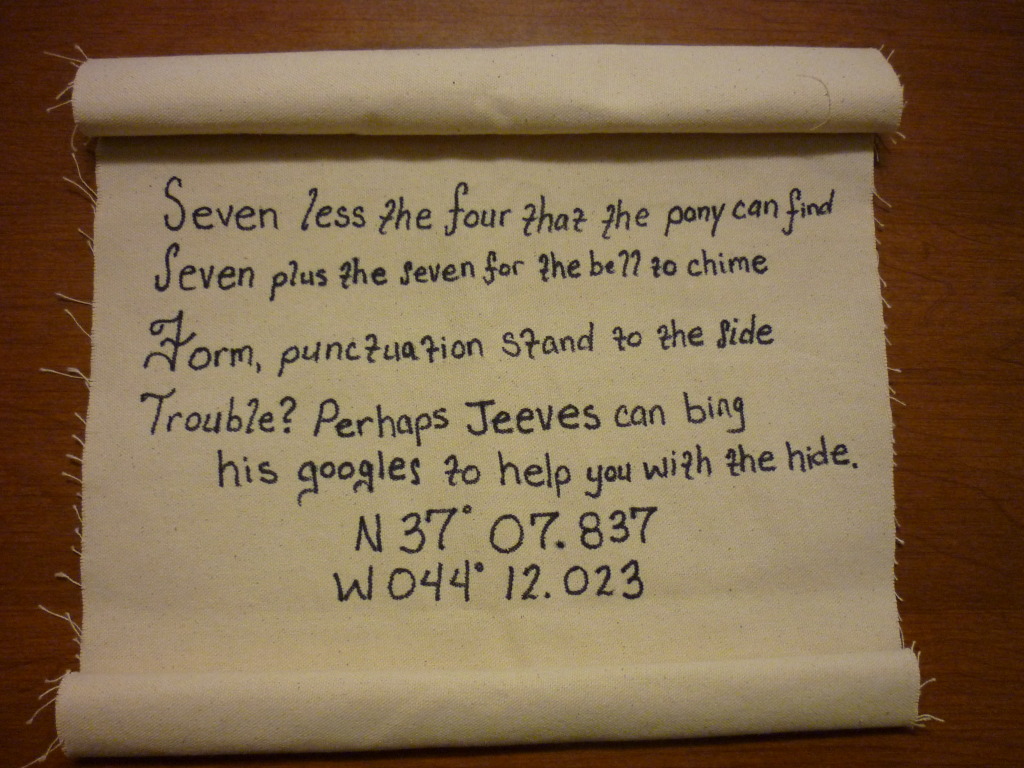 Seven less the four that the pony can find
Seven plus the seven for the bell to chime
Form, punctuation stand to the side
Trouble? Perhaps Jeeves can bing
his googles to help you with the hide.
N 37° 07.837
W 044° 12.023